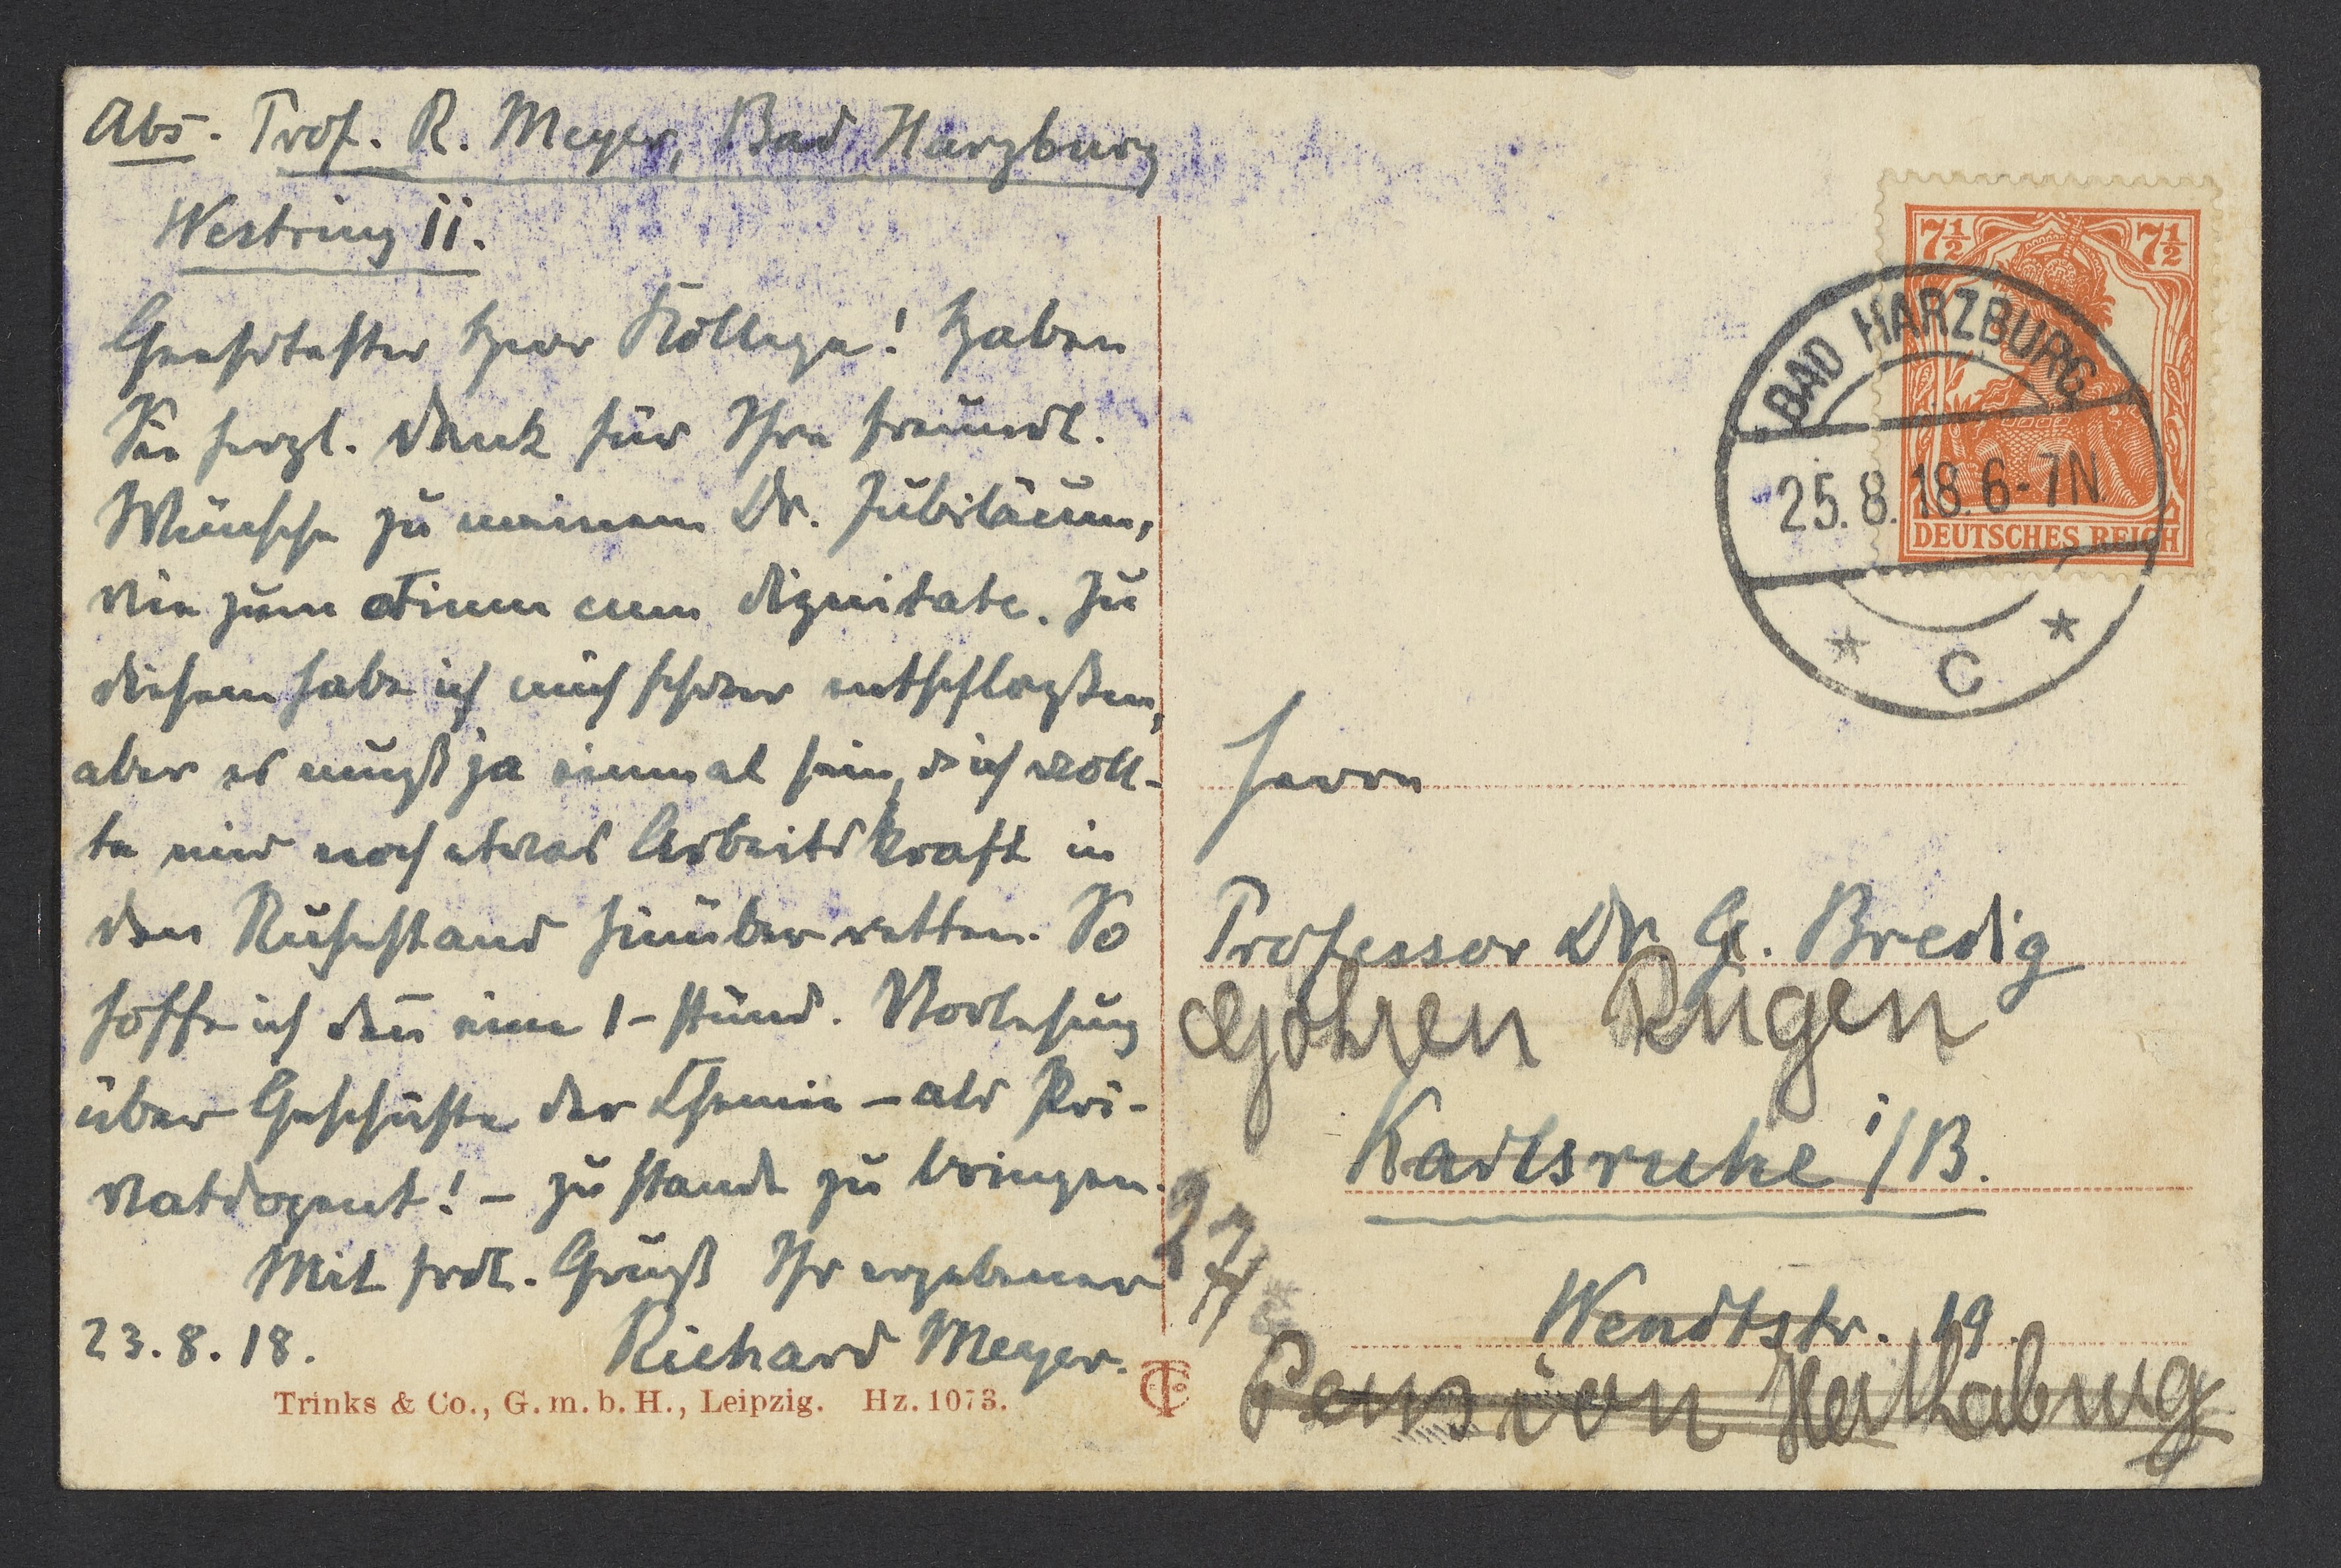 Abs. Prof. R. Meyer, Bad Harzburg
Westring 11.
Geehrtester Herr Kollege! Haben
Sie herzl. Dank für Ihre freundl.
Wünsche zu meinem Dr. Jubiläum,
wie zum otium cum dignitate. Zu
diesem habe ich mich schwer entschloßen,
aber es mußt ja einmal sein, & ich woll-
te mir noch etwas Arbeitskraft in
den Ruhestand hinüber retten. So
hoffe ich deñ eine 1-stünd. Vorlesung
über Geschichte der Chemie – als Pri-
vatdozent! – zu stande zu bringen.
Mit frdl. Gruß Ihr ergebener
23.8.18. Richard Meyer.
Trinks & Co., G. m. b. H., Leipzig. Hz. 1073.
7½ 7½
DEUTSCHES REICH
BAD HARZBURG
25.8.18.6-7N
* C *
Herrn
Professor Dr. G. Bredig
Göhren Rügen
Karlsruhe i/B.
27
Wendtstr. 19.
Pension